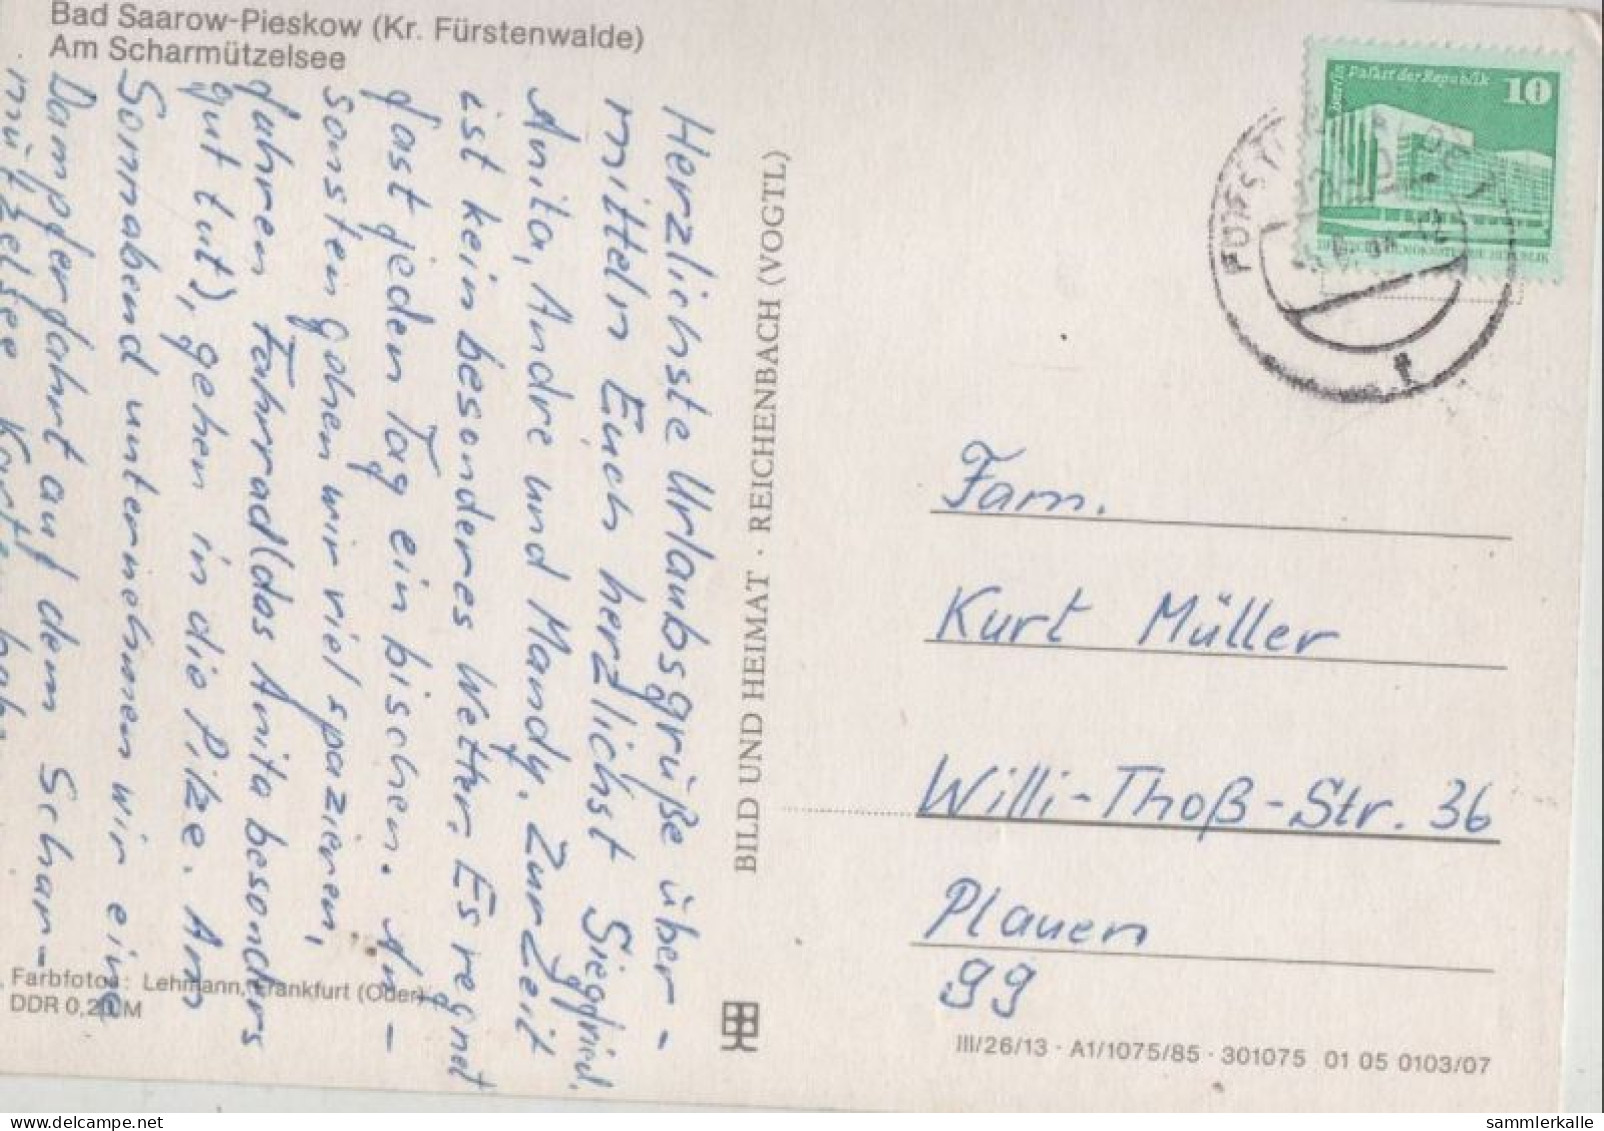 Bad Saarow-Pieskow (Kr. Fürstenwalde)
Am Scharmützelsee
Herzlichste Urlaubsgrüße über-
mitteln Euch herzlichst Siegfried,
Anita, Andre und Mandy. Zur Zeit
ist kein besonderes Wetter. Es regnet
fast jeden Tag ein bischen. An-
sonsten gehen wir viel spazieren,
fahren Fahrrad (das Anita besonders
gut tut), gehen in die Pilze. Am
Sonnabend unternehmen wir eine
Dampferfahrt auf dem Schar-
mützelsee. Karten
Farbfotos: Lehmann, Frankfurt (Oder)
DDR 0,20 M
BILD UND HEIMAT · REICHENBACH (VOGTL)
Berlin Palast der Republik
10
Fam.
Kurt Müller
Willi-Thoß-Str. 36
Plauen
99
III/26/13 · A1/1075/85 · 301075 01 05 0103/07
sammlerkalle